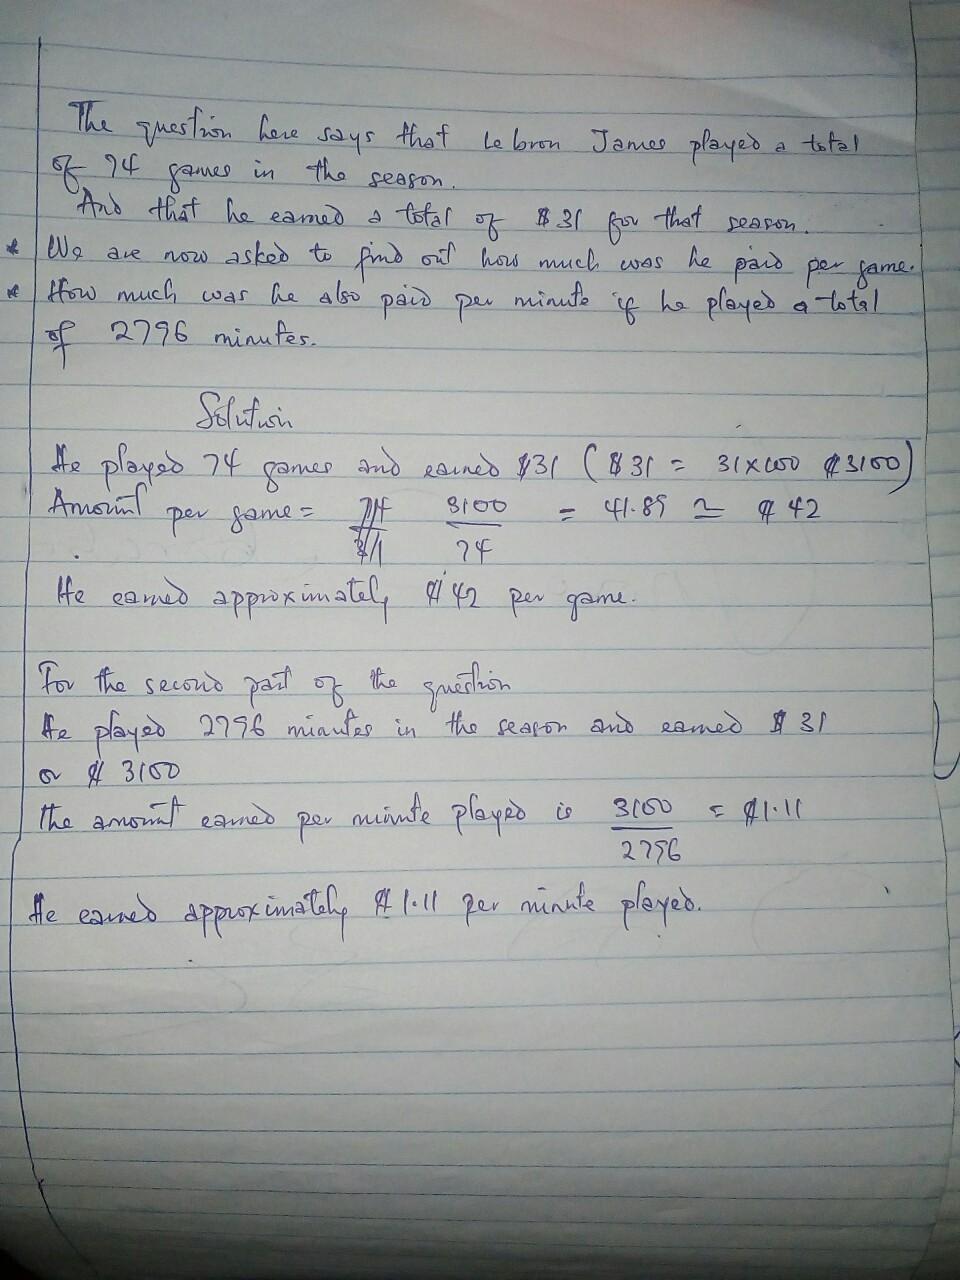 The question here says that Lebron James played a total
of 74 games in the season.
And that he earned a total of $31 for that season.
* We are now asked to find out how much was he paid per game.
* How much was he also paid per minute if he played a total
of 2796 minutes.
Solution
He played 74 games and earned $31 ($31 = 31x100 ¢3100)
Amount per game = 3100/74 = 41.89 ≃ ¢42
He earned approximately ¢42 per game.
For the second part of the question
He played 2796 minutes in the season and earned $31
or ¢3100
The amount earned per minute played is 3100/2796 = ¢1.11
He earned approximately ¢1.11 per minute played.